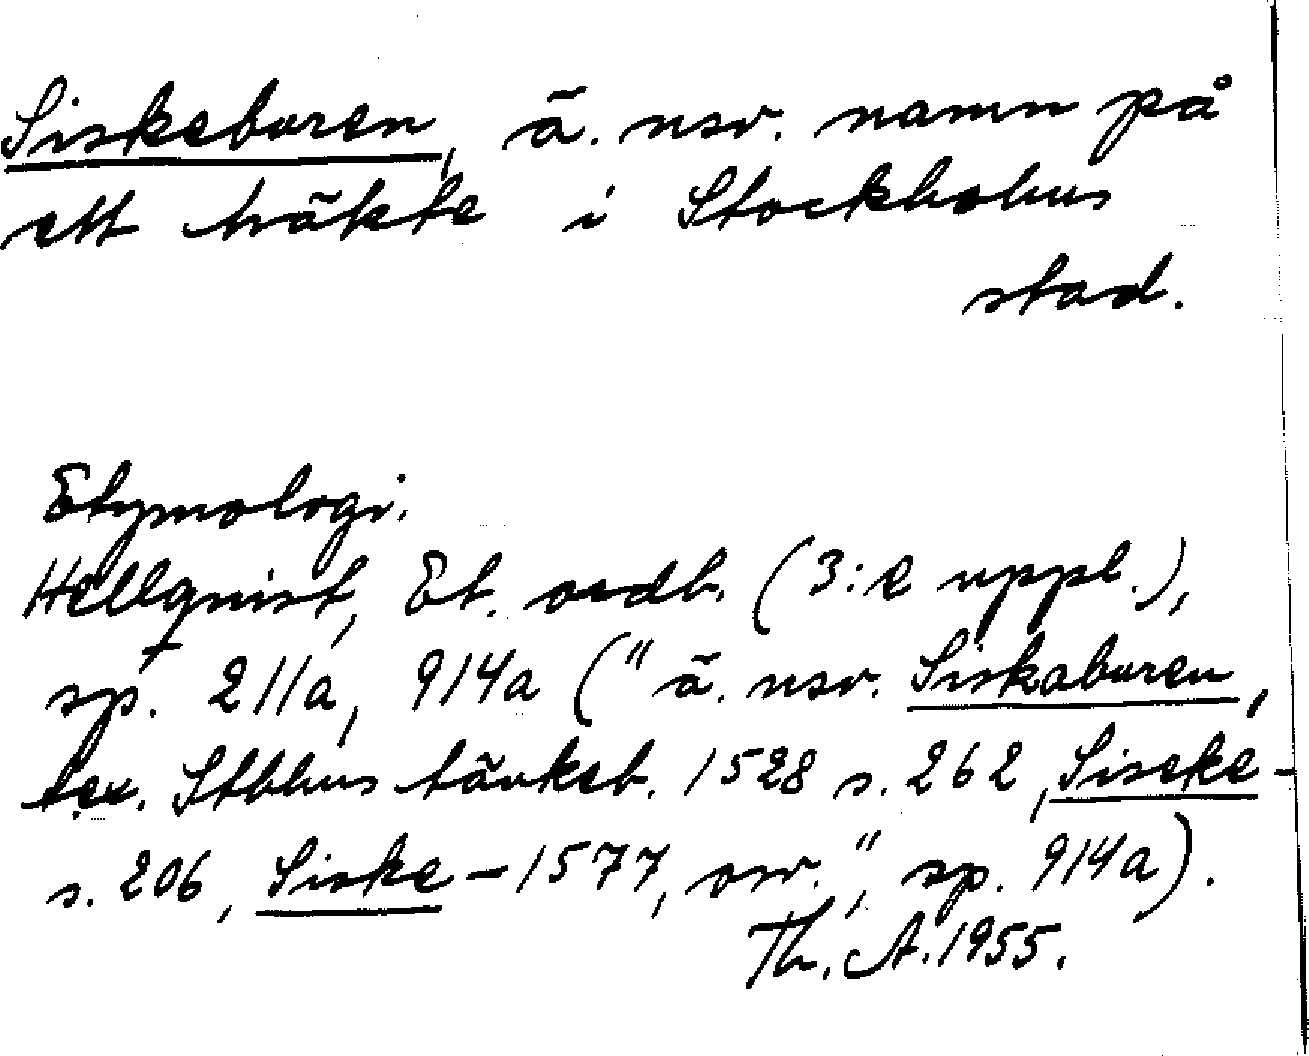 Siskeburen, ä. nsv. namn på
ett häkte i Stockholms
stad.
Etymologi.
Hellquist, Et. ordb. (3:e uppl.),
sp. 211a, 914a ("ä. nsv. Siskaburen,
t.ex. Sthlms tänkeb. 1528 s. 262, Siseke-
s. 206, Siske- 1577, osv.", sp. 914a).
Th. A. 1955.